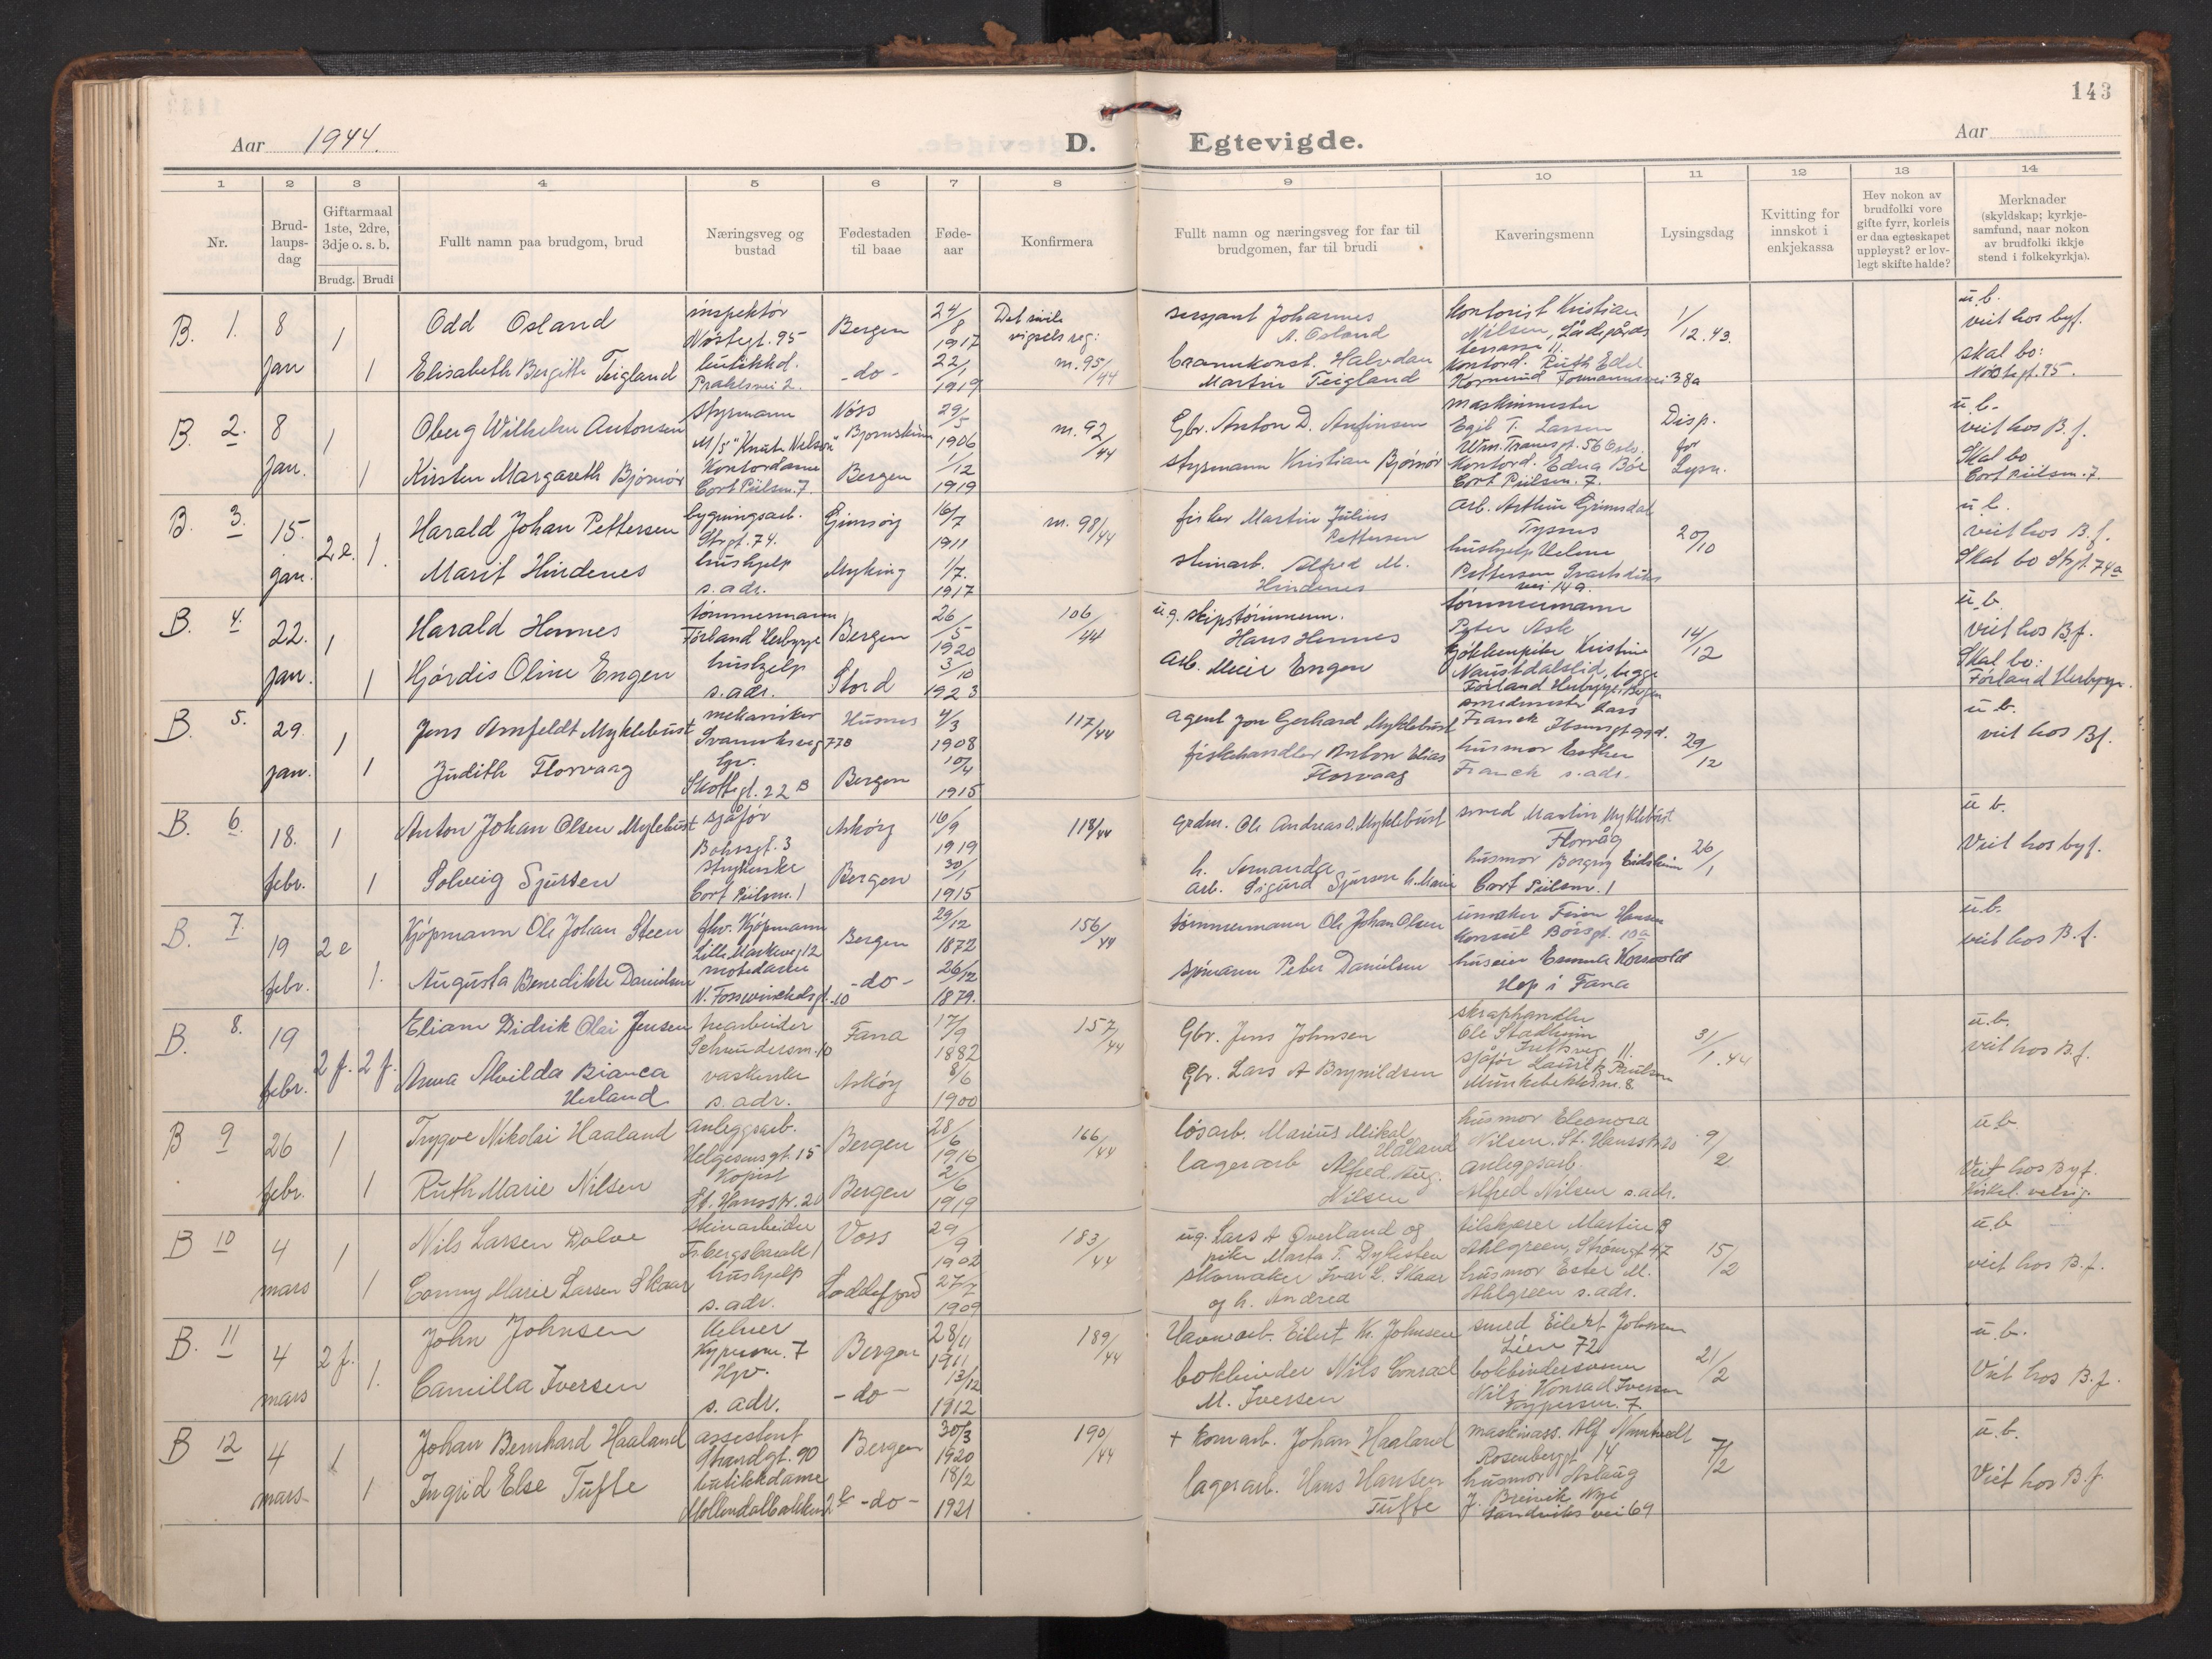 143
Aar 1944.
D.
Egtevigde.
Aar
1 2 3 4 5 6 7 8 9 10 11 12 13 14
Nr.
Brud-
laups-
dag
Giftarmaal
1ste, 2dre,
3dje o. s. b.
Brudg. Brudi
Fullt namn paa brudgom, brud
Næringsveg og
bustad
Fødestaden
til baae
Føde-
aar
Konfirmera
Fullt namn og næringsveg for far til
brudgomen, far til brudi
Kaveringsmenn
Lysingsdag
Kvitting for
innskot i
enkjekassa
Hev nokon av
brudfolki vore
gifte fyrr, korleis
er daa egteskapet
uppløyst? er lov-
legt skifte halde?
Merknader
(skyldskap; kyrkje-
samfund, naar nokon
av brudfolki ikkje
stend i folkekyrkja).
B. 1. 8 jan 1 1
Odd Osland
Elisabeth Bergitte Teigland
inspektør
Nøstegt. 95
butikkd.
Prahlsvei 2.
Bergen
-do-
24/8
1917
22/1
1919
Det sivile
vigselsreg:
nr. 95/44
sersjant Johannes
A. Osland
brannkonst. Halvdan
Martin Teigland
Kontorist Kristian
Nilsen, Ladegårds
terrasse 11.
Kontord. Ruth Edel
Formannsvei 38a
1/12.43.
u.b.
viet hos byf.
skal bo:
Nøstegt. 95.
B. 2. 8 jan. 1 1
Oberg Wilhelm Antonsen
Kirsten Margareth Bjørnør
styrmann
M/S "Knute Nelson"
Kontordame
Cort Piilsm. 7.
Voss
Bergen
29/5
1906
1/12
1919
nr. 92/44
Gbr. Anton D. Anfinsen
styrmann Kristian Bjørnør
maskinmester
Egil T. Larsen
Wm. Tranesgt. 56 Oslo.
Kontord. Edna Bøe
Cort Piilsm. 7.
Disp.
for
Lysn.
u.b.
viet hos B.f.
Skal bo
Cort Piilsm. 7.
B. 3. 15. jan. 2e. 1.
Harald Johan Pettersen
Marit Hindenes
bygningsarb.
Strgt. 74.
hushjelp
s. adr.
Gimsøy
Myking
16/7
1911
1/7.
1917
nr. 98/44
fisker Martin Julius
Pettersen
steinarb. Alfred M.
Hindenes
arb. Arthur Grimsdal
Tysnes
hushjelp Helene
Pettersen Svartediks
vei 149.
20/10
u.b.
viet hos B.f.
Skal bo Strgt. 74a
B. 4. 22. jan. 1 1
Harald Hennes
Hjørdis Oline Engen
tømmermann
Førland Herbygge
hushjelp
s. adr.
Bergen
Stord
26/5
1920
3/10
1923
106/44
u.g. skipstømmerm.
Hans Hennes
Arb. Meier Engen
tømmermann
Peter Ask
Kjøkkenpike Kristine
Naustdalslid, begge
Førland Herbygge, Bergen
14/12
u.b.
viet hos B.f.
Skal bo:
Førland Herbygge.
B. 5. 29. jan. 1 1
Jens Arnfeldt Myklebust
Judith Florvaag
mekaniker
hjv.
Skottegt. 22 B
Husnes
Bergen
4/3
1908
10/4
1915
117/44
agent Jon Gerhard Myklebust
fiskehandler Anton Elias
Florvaag
smedmester Lars
Franck Ibsensgt
husmor Esther
Franck s. adr.
29/12
u.b.
viet hos Bf.
B. 6. 18. febr. 1 1
Anton Johan Olsen Myklebust
Solveig Sjursen
sjåfør
Bohrsgt. 3
strykerske
Cort Piilsm. 1
Askøy
Bergen
16/9
1919
30/1
1915
118/44
grdm. Ole Andreas O. Myklebust
h. Fernanda
arb. Sigurd Sjursen h. Marie
smed Martin Myklebust
Florvåg
husmor Borgny Eidsheim
Cort Piilsm. 1
26/1
u.b.
Viet hos byf.
B. 7. 19 febr. 2e 1.
Kjøpmann Ole Johan Steen
Augusta Benedikte Danielsen
fhv. Kjøpmann
Lille Markevei 12
motedame
N. Fosswinckelsgt. 10
Bergen
-do-
29/12
1872
26/12
1879.
156/44
tømmermann Ole Johan Olsen
sjømann Peter Danielsen
urmaker Finn Hansen
Konsul Børsgt. 10a
huseier Emma Korsvold
Hop i Fana
u.b.
viet hos B.f.
B. 8. 19 febr. 2f. 2f.
Eliam Didrik Olai Jensen
Anna Alvilda Bianca
Herland
trearbeider
Schrøndersm. 10
vaskerske
s. adr.
Fana
Askøy
17/9
1882
8/6
1900
157/44
Gbr. Jens Johnsen
Gbr. Lars A Brynildsen
skraphandler
Ole Stadheim
11.
sjåfør Lauritz Paulsen
Munkebekksm. 8
31/1.44
u.b.
viet hos B.f.
B 9 26 febr. 1 1
Trygve Nikolai Haaland
Ruth Marie Nilsen
anleggsarb.
Helgesensgt. 15
Kopist
St. Hansstr. 20
Bergen
Bergen
28/6
1916
2/6
1919
166/44
løsarb. Marius Mikal
Håland
lagerarb Alfred Aug.
Nilsen
husmor Eleonora
Nilsen. St. Hansstr 20
anleggsarb.
Alfred Nilsen s. adr.
9/2
u.b.
Viet hos Byf.
Kirkel. velsig.
B 10 4 mars 1 1
Nils Larsen Dolve
Conny Marie Larsen Skaar
steinarbeider
hushjelp
s. adr.
Voss
Loddefjord
29/9
1902
27/7
1909
183/44
ug. Lars A Øverland og
pike Marta T. Dykesten
skomaker Ivar L. Skaar
og h. Andrea
tilskjærer Martin B
Ahlgreen, Strømgt 47
husmor Ester M.
Ahlgreen s. adr.
15/2
u.b
viet hos B.f.
B. 11 4 mars 2f. 1.
John Johnsen
Camilla Iversen
Kelner
Kypersm. 7
Hjv.
s. adr.
Bergen
-do-
28/11
1911
13/12
1912
189/44
Havnearb. Eilert Kr. Johnsen
bokbinder Nils Conrad
M. Iversen
smed Eilert Johnsen
Lien 72
bokbindersvenn
Nils Konrad Iversen
Kypersm. 7.
21/2
u.b.
Viet hos B.f.
B 12 4 mars 1 1
Johan Bernhard Haaland
Ingrid Else Tufte
assistent
Strandgt. 90
butikkdame
Møllendalbakken 2b
Bergen
-do-
30/3
1920
18/2
1921
190/44
+ kom arb. Johan Haaland
lagerarb. Hans Hansen
Tufte
maskinass. Alf
Rosenbergst 14
husmor Aslaug
J. Breivik Nye
Sandviks vei 69
7/2
u.b.
Viet hos B.f.